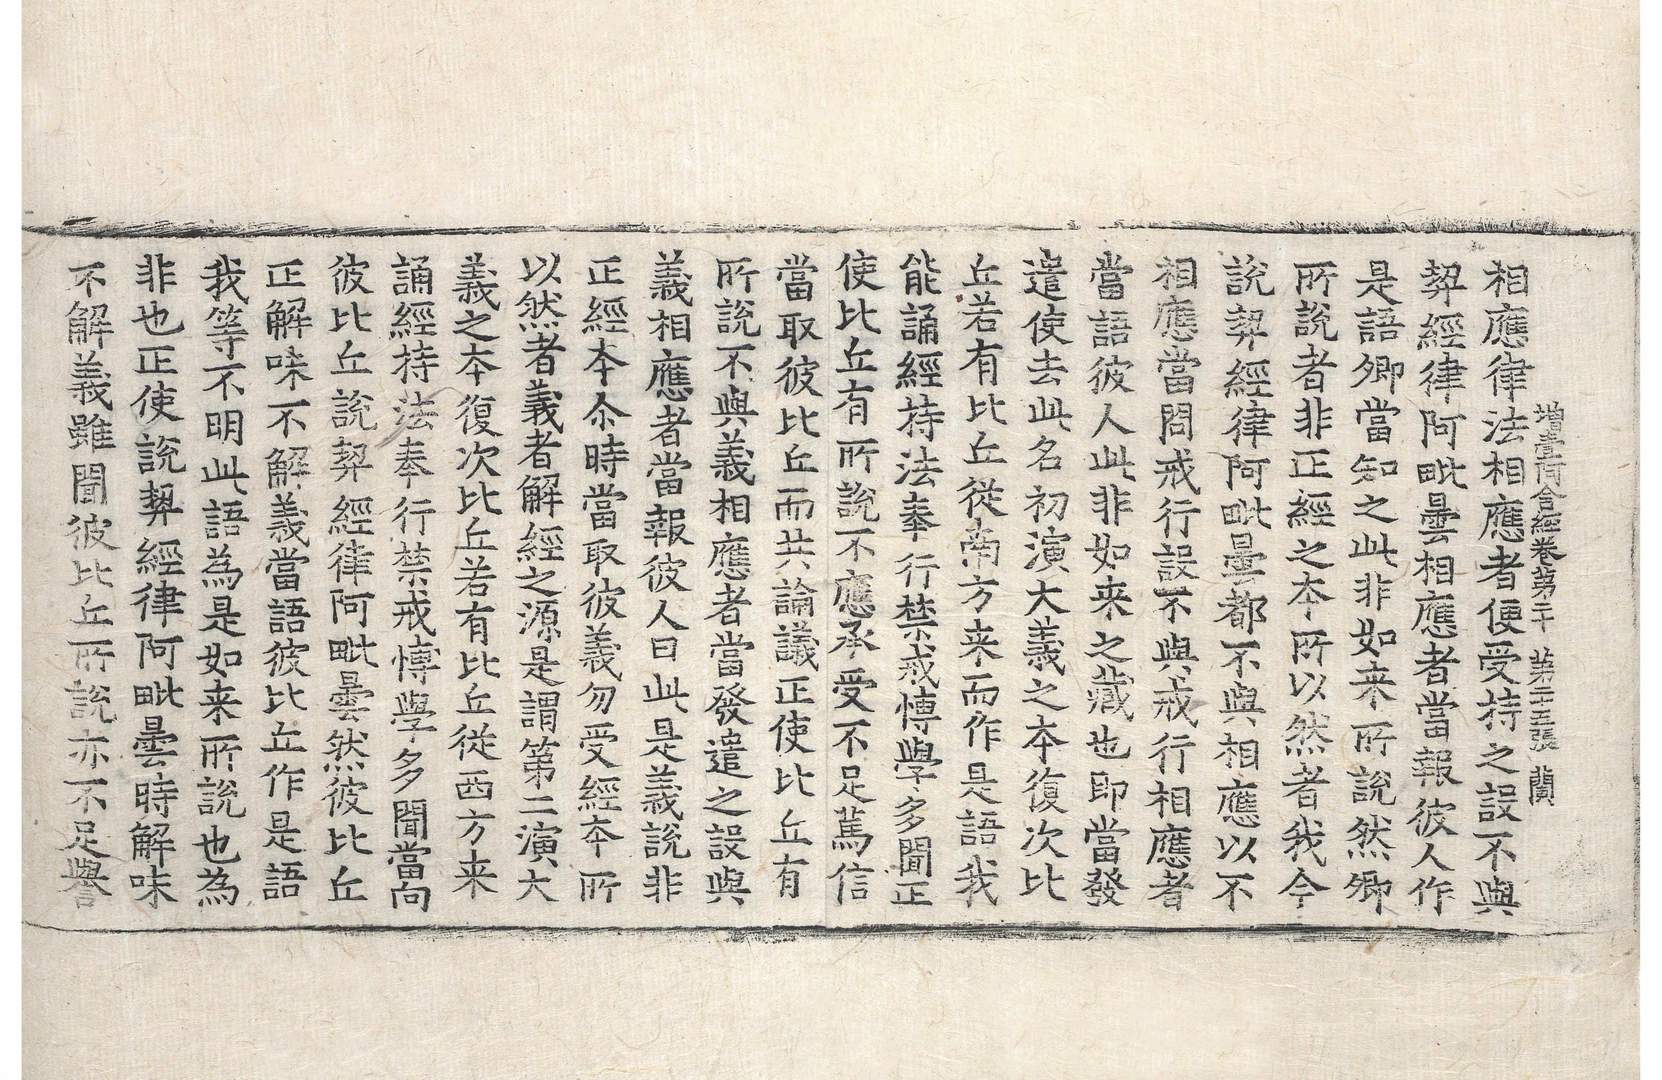 增壹阿含經卷第二十　第二十五張　蘭
相應律法相應者便受持之設不與
契經律阿毗曇相應者當報彼人作
是語卿當知之此非如来所說然卿
所說者非正經之本所以然者我今
說契經律阿毗曇都不與相應以不
相應當問戒行設不與戒行相應者
當語彼人此非如来之藏也即當發
遣使去此名初演大義之本復次比
丘若有比丘從南方来而作是語我
能誦經持法奉行禁戒博學多聞正
使比丘有所說不應承受不足篤信
當取彼比丘而共論議正使比丘有
所說不與義相應者當發遣之設與
義相應者當報彼人曰此是義說非
正經本尒時當取彼義勿受經本所
以然者義者解經之源是謂第二演大
義之本復次比丘若有比丘從西方来
誦經持法奉行禁戒博學多聞當向
彼比丘說契經律阿毗曇然彼比丘
正解味不解義當語彼比丘作是語
我等不明此語為是如来所說也為
非也正使說契經律阿毗曇時解味
不解義雖聞彼比丘所說亦不足譽